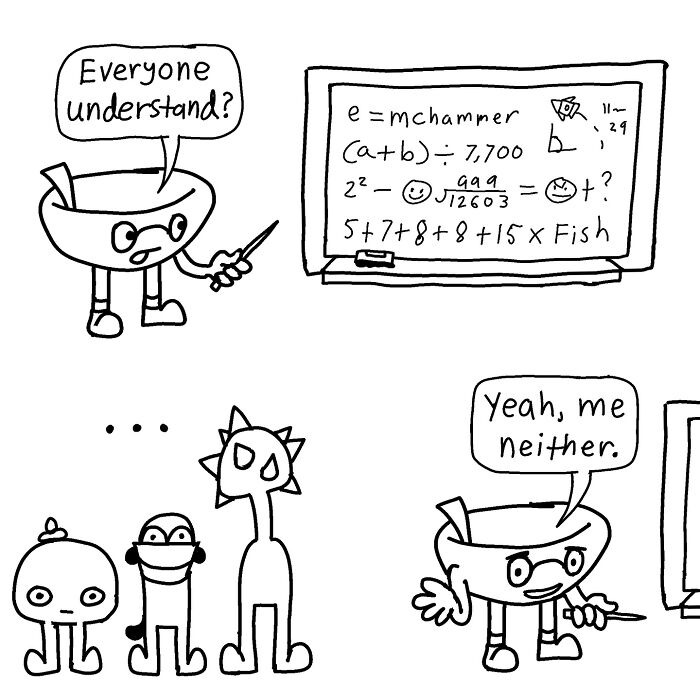 Everyone
understand?
e = mchammer
(a+b) ÷ 7,700
2² - ☺√999/12603 = ☹+?
5+7+8+8+15 x Fish
b
29
...
Yeah, me
neither.